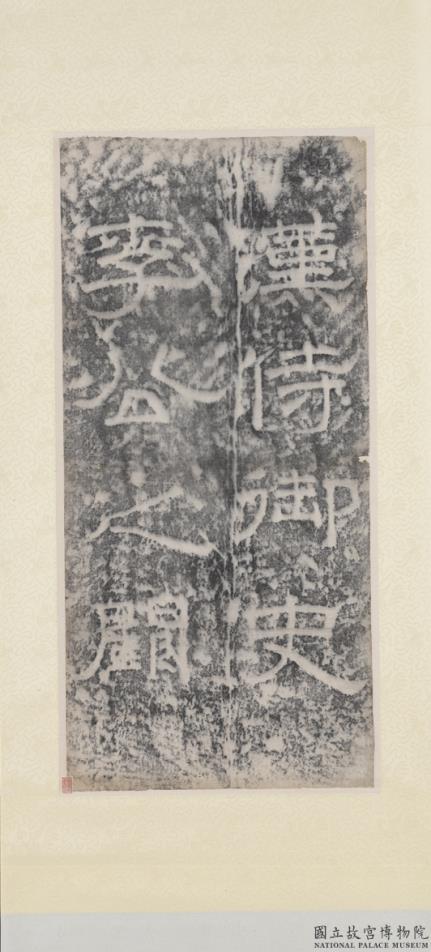 漢侍御史
李公之闕
國立故宮博物院
NATIONAL PALACE MUSEUM